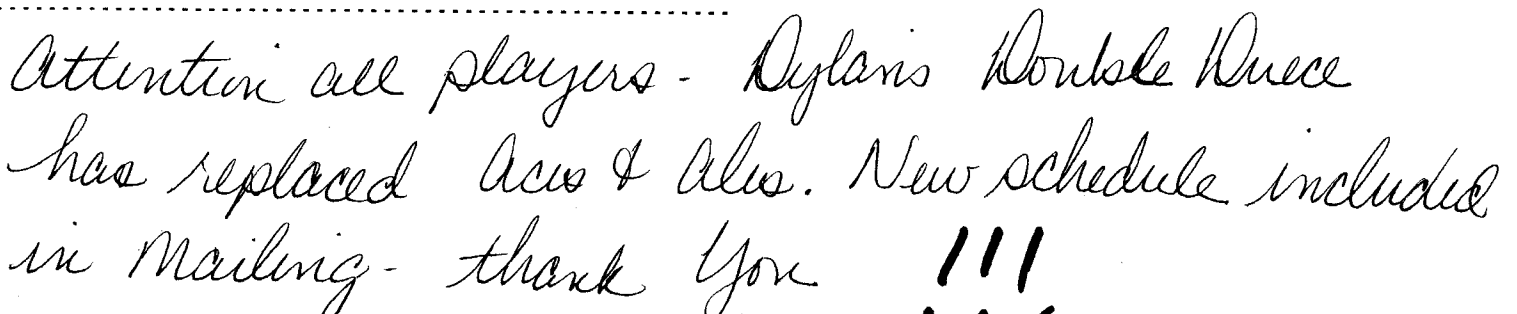 Attention all players - Dylans Double Duece
has replaced Aces & Ales. New schedule included
in Mailing - thank You !!!